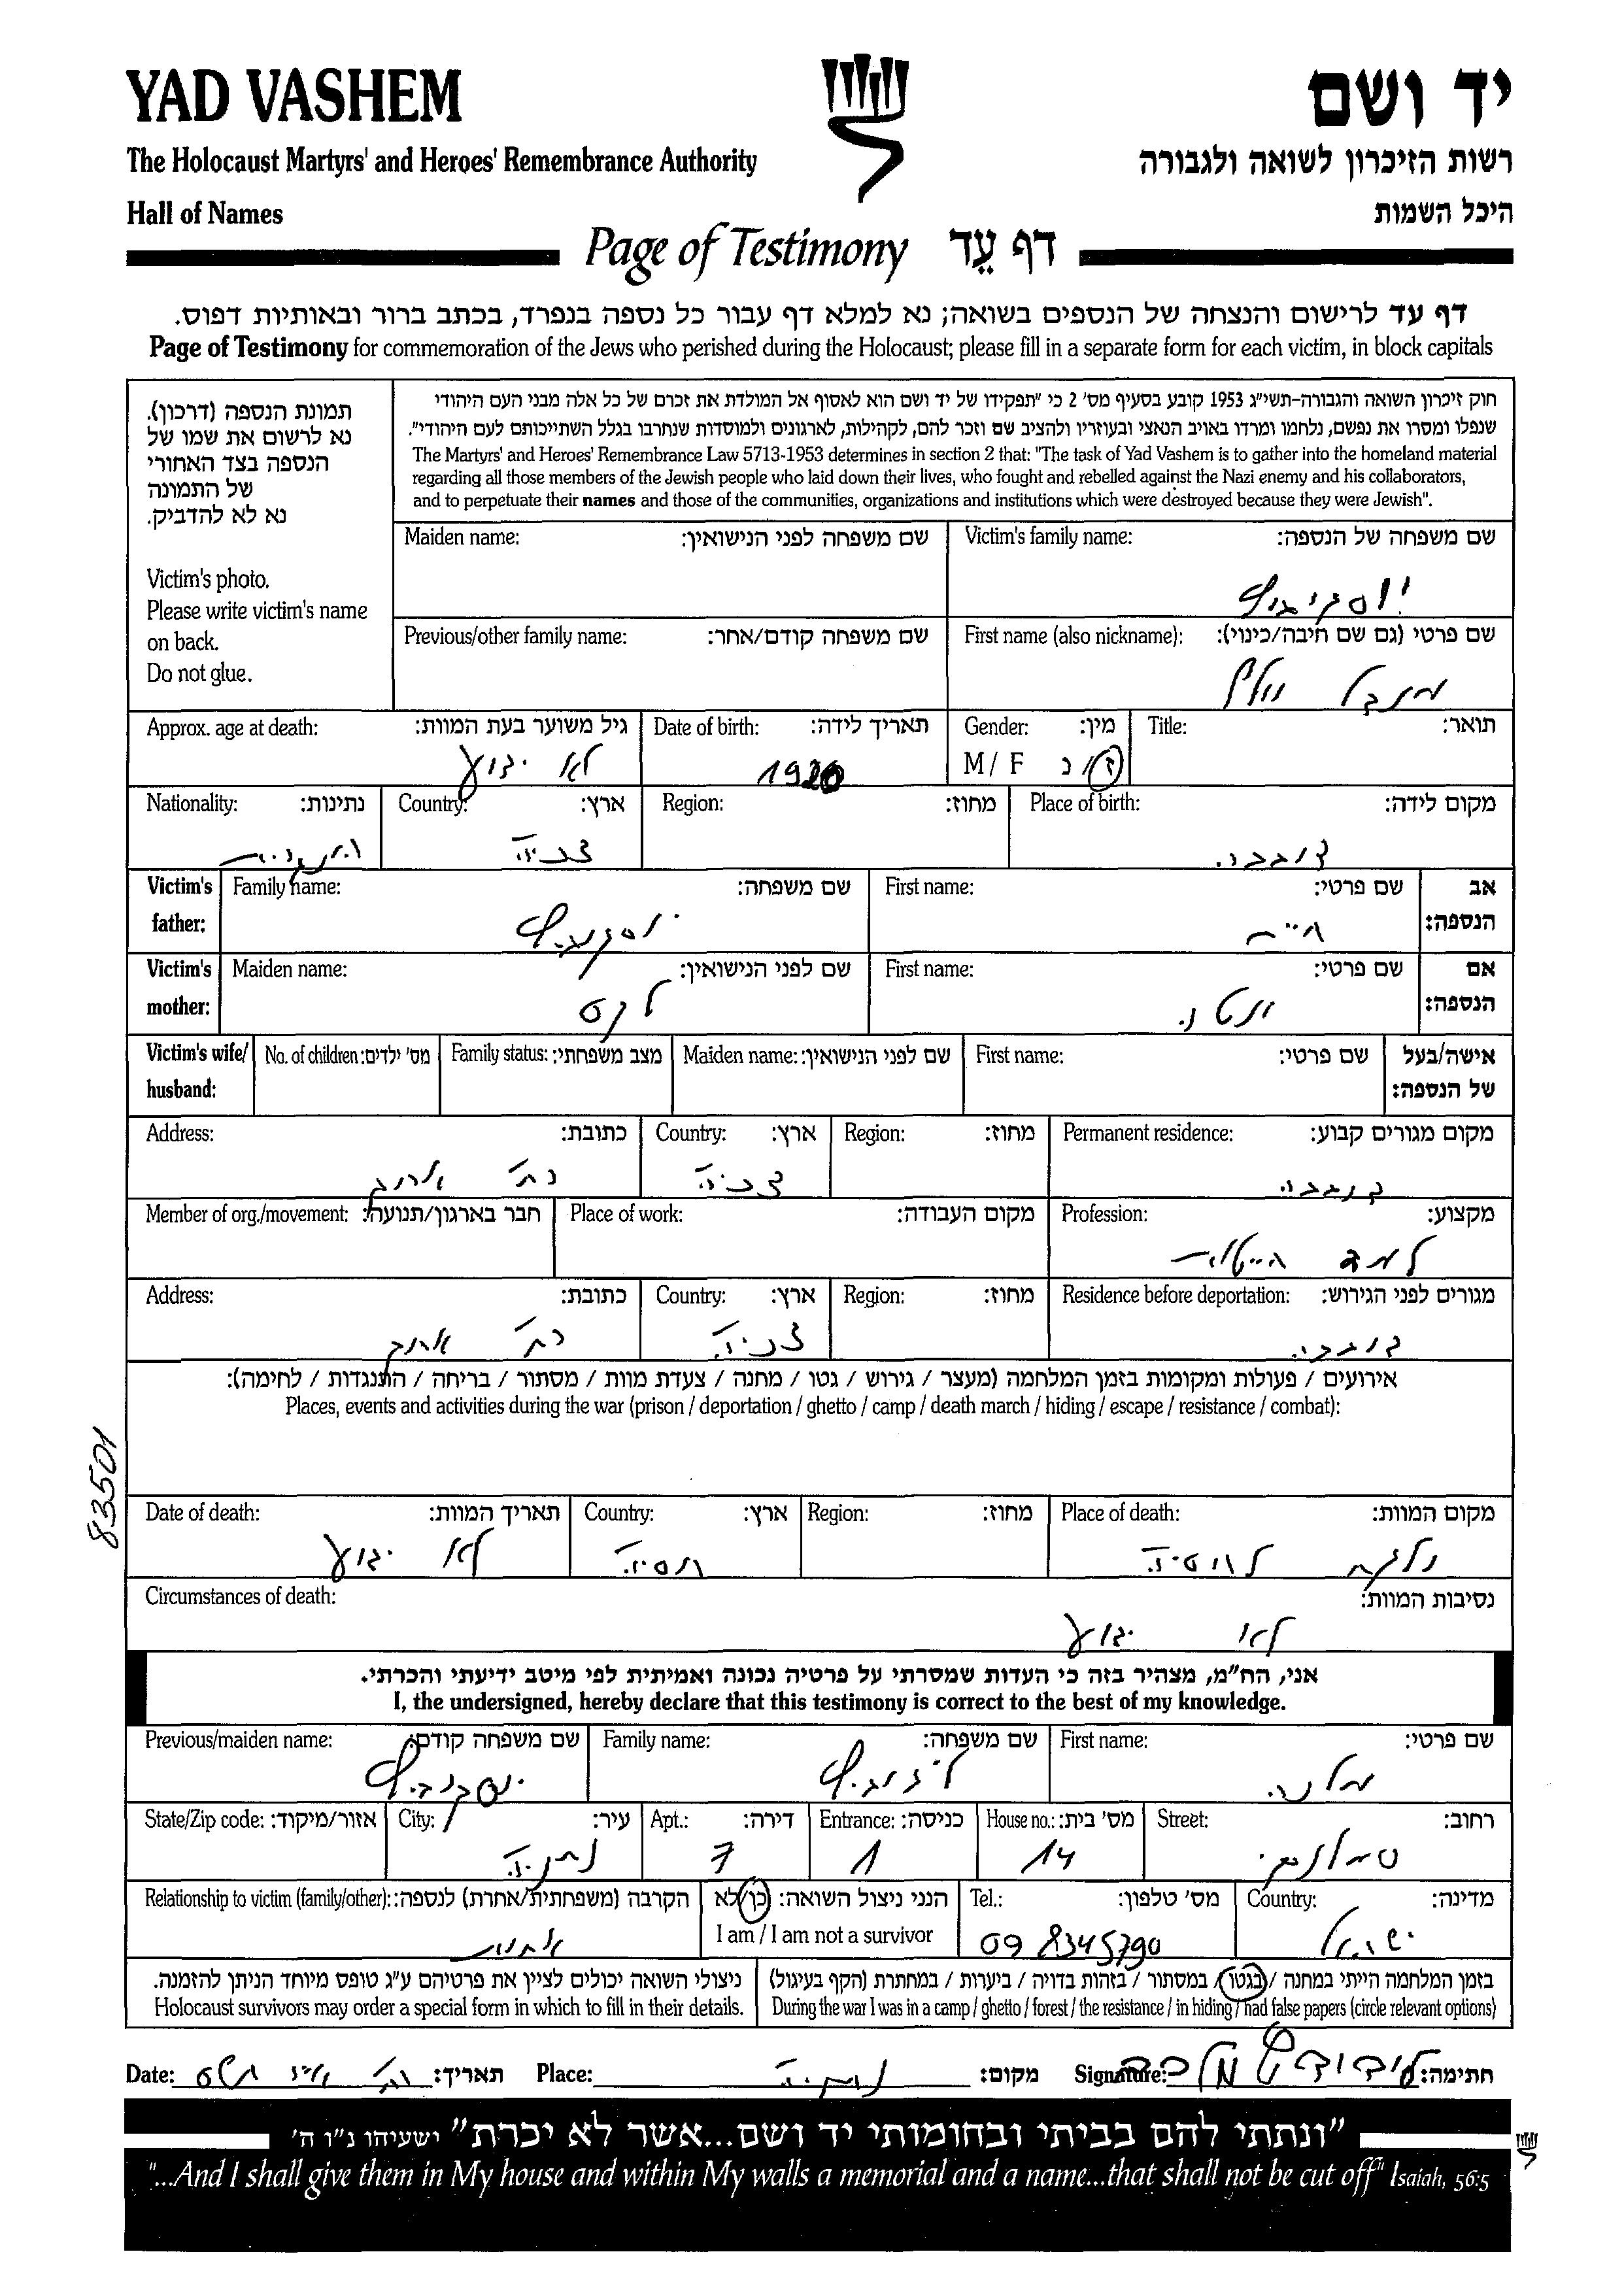 YAD VASHEM
יד ושם
The Holocaust Martyrs' and Heroes' Remembrance Authority
רשות הזיכרון לשואה ולגבורה
Hall of Names
היכל השמות
Page of Testimony דף עֵד
דף עד לרישום והנצחה של הנספים בשואה; נא למלא דף עבור כל נספה בנפרד, בכתב ברור ובאותיות דפוס.
Page of Testimony for commemoration of the Jews who perished during the Holocaust; please fill in a separate form for each victim, in block capitals
תמונת הנספה (דרכון).
נא לרשום את שמו של
הנספה בצד האחורי
של התמונה
נא לא להדביק.
Victim's photo.
Please write victim's name
on back.
Do not glue.
חוק זיכרון השואה והגבורה-תשי"ג 1953 קובע בסעיף מס' 2 כי "תפקידו של יד ושם הוא לאסוף אל המולדת את זכרם של כל אלה מבני העם היהודי
שנפלו ומסרו את נפשם, נלחמו ומרדו באויב הנאצי ובעוזריו ולהציב שם וזכר להם, לקהילות, לארגונים ולמוסדות שנחרבו בגלל השתייכותם לעם היהודי".
The Martyrs' and Heroes' Remembrance Law 5713-1953 determines in section 2 that: "The task of Yad Vashem is to gather into the homeland material
regarding all those members of the Jewish people who laid down their lives, who fought and rebelled against the Nazi enemy and his collaborators,
and to perpetuate their names and those of the communities, organizations and institutions which were destroyed because they were Jewish".
Maiden name: שם משפחה לפני הנישואין: Victim's family name: שם משפחה של הנספה:
Previous/other family name: שם משפחה קודם/אחר: First name (also nickname): שם פרטי (גם שם חיבה/כינוי):
Approx. age at death: גיל משוער בעת המוות: Date of birth: תאריך לידה: Gender: מין: Title: תואר:
לא ידוע M / F ז / נ
Nationality: נתינות: Country: ארץ: Region: מחוז: Place of birth: מקום לידה:
Victim's father: Family name: שם משפחה: First name: שם פרטי: אב הנספה:
חיים
Victim's mother: Maiden name: שם לפני הנישואין: First name: שם פרטי: אם הנספה:
Victim's wife/ husband: No. of children: מס' ילדים: Family status: מצב משפחתי: Maiden name: שם לפני הנישואין: First name: שם פרטי: אישה/בעל של הנספה:
Address: כתובת: Country: ארץ: Region: מחוז: Permanent residence: מקום מגורים קבוע:
Member of org./movement: חבר בארגון/תנועה: Place of work: מקום העבודה: Profession: מקצוע:
למד חייטות
Address: כתובת: Country: ארץ: Region: מחוז: Residence before deportation: מגורים לפני הגירוש:
אירועים / פעולות ומקומות בזמן המלחמה (מעצר / גירוש / גטו / מחנה / צעדת מוות / מסתור / בריחה / התנגדות / לחימה):
Places, events and activities during the war (prison / deportation / ghetto / camp / death march / hiding / escape / resistance / combat):
83501
Date of death: תאריך המוות: Country: ארץ: Region: מחוז: Place of death: מקום המוות:
לא ידוע רוסיה נלקח לרוסיה
Circumstances of death: נסיבות המוות:
לא ידוע
אני, הח"מ, מצהיר בזה כי העדות שמסרתי על פרטיה נכונה ואמיתית לפי מיטב ידיעתי והכרתי.
I, the undersigned, hereby declare that this testimony is correct to the best of my knowledge.
Previous/maiden name: שם משפחה קודם: Family name: שם משפחה: First name: שם פרטי:
מלכה
State/Zip code: אזור/מיקוד: City: עיר: Apt.: דירה: Entrance: כניסה: House no.: מס' בית: Street: רחוב:
נתניה 7 1 14 סמילנסקי
Relationship to victim (family/other): הקרבה (משפחתית/אחרת) לנספה: הנני ניצול השואה: כן/לא Tel.: מס' טלפון: Country: מדינה:
I am / I am not a survivor
אחות 09 8345790 ישראל
ניצולי השואה יכולים לציין את פרטיהם ע"ג טופס מיוחד הניתן להזמנה.
Holocaust survivors may order a special form in which to fill in their details.
בזמן המלחמה הייתי במחנה / בגטו / במסתור / בזהות בדויה / ביערות / במחתרת (הקף בעיגול)
During the war I was in a camp / ghetto / forest / the resistance / in hiding / had false papers (circle relevant options)
Date: תאריך: Place: נתניה מקום: Signature: מלכה חתימה:
"ונתתי להם בביתי ובחומותי יד ושם...אשר לא יכרת" ישעיהו נ"ו ה'
"...And I shall give them in My house and within My walls a memorial and a name...that shall not be cut off" Isaiah, 56:5